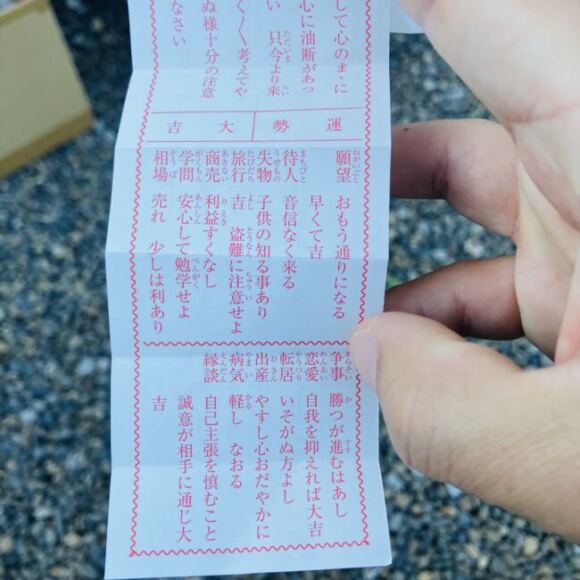 して心のまゝに
心に油断があっ
い 只今より来
く〱考えてや
ぬ様十分の注意
なさい
運勢 大吉
願望 おもう通りになる
早くて吉
待人 音信なく来る
失物 子供の知る事あり
旅行 吉 盗難に注意せよ
商売 利益すくなし
学問 安心して勉学せよ
相場 売れ 少しは利あり
争事 勝つが進むはあし
恋愛 自我を抑えれば大吉
転居 いそがぬ方よし
出産 やすし心おだやかに
病気 軽し なおる
縁談 自己主張を慎むこと
誠意が相手に通じ大
吉